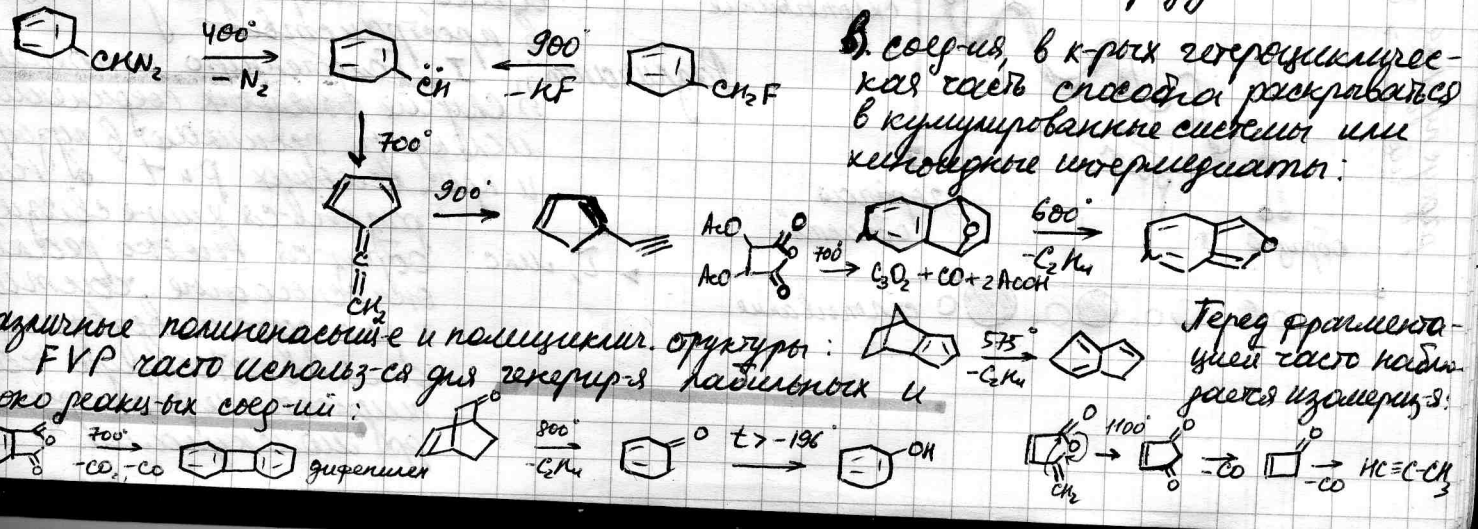 CHN₂
400°
- N₂
C̈H
900°
- HF
CH₂F
700°
900°
C
CH₂
В). соед-ия, в к-рых гетероцикличес-
кая часть способна раскрываться
в кумулированные системы или
хиноидные интермедиаты:
AcO
AcO
O
O
O
700°
C₃O₂ + CO + 2AcOH
O
600°
-C₂H₄
O
азличные полиненасыщ-е и полициклич. структуры:
575°
-C₂H₄
Перед фрагмента-
цией часто наблю-
дается изомериз-я:
FVP часто использ-ся для генерир-я лабильных и
око реакц-ых соед-ий:
O
O
O
700°
-CO₂, -CO
дифенилен
O
800°
-C₂H₄
O
t > -196°
OH
O
O
CH₂
1100°
O
O
-CO
O
-CO
HC≡C-CH₃